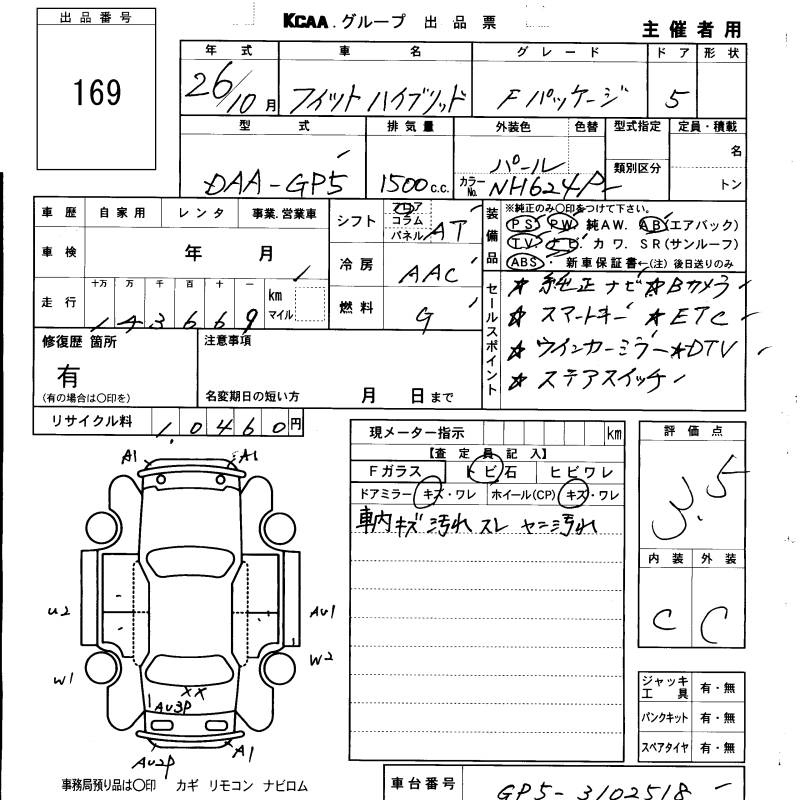 出品番号
169
KCAA.グループ 出品票
主催者用
年式 車名 グレード ドア 形状
26/10月 フィット ハイブリッド Fパッケージ 5
型式 排気量 外装色 色替 型式指定 定員・積載
DAA-GP5 1500c.c. パール 名
類別区分
カラーNo. NH624P トン
車歴 自家用 レンタ 事業.営業車
車検 年 月
走行 十万 万 千 百 十 一
143669 km マイル
シフト フロア コラム パネル AT
冷房 AAC
燃料 G
装備品
※純正のみ○印をつけて下さい。
PS PW 純AW. AB(エアバック)
TV ナビ カワ. SR(サンルーフ)
ABS 新車保証書←(注) 後日送りのみ
セールスポイント
☆ 純正ナビ ☆Bカメラ
☆ スマートキー ☆ETC
☆ ウインカーミラー ☆DTV
☆ ステアスイッチ
修復歴 箇所
有
(有の場合は○印を)
注意事項
名変期日の短い方 月 日まで
リサイクル料 10460円
現メーター指示 km
【査定員記入】
Fガラス トビ石 ヒビワレ
ドアミラー キズ・ワレ ホイール(CP) キズ・ワレ
車内キズ汚れ スレ ヤニ汚れ
評価点
3.5
内装 外装
C C
A1 A1
U2 AU1
W1 W2
XX
AU3P
AU2P A1
ジャッキ工具 有・無
パンクキット 有・無
スペアタイヤ 有・無
事務局預り品は○印 カギ リモコン ナビロム
車台番号 GP5-3102518